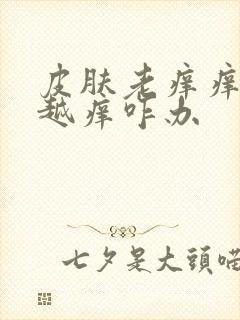 皮肤老痒痒
越痒咋办
七夕是大頭喵